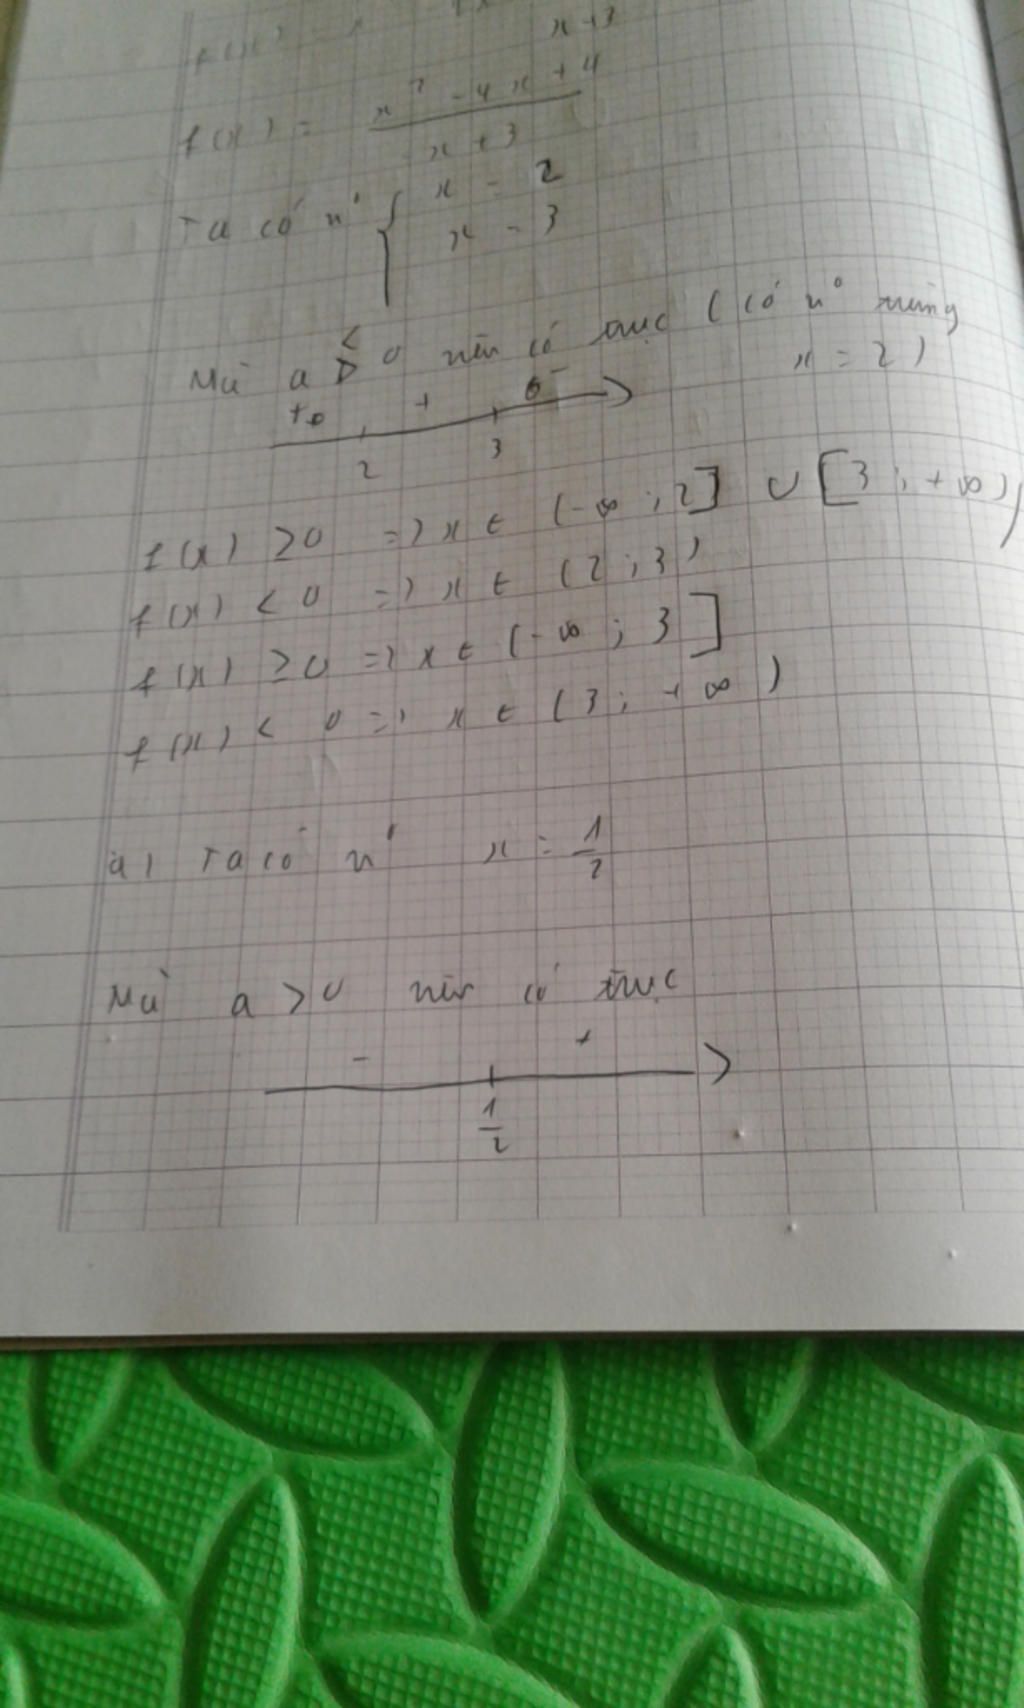 f(x)
x+3
f(x) = x² - 4x + 4
-x + 3
Ta có n° { x = 2
x = 3
Mà a < 0 nên có trục (có n° trùng
x = 2)
+ + -
2 3
f(x) ≥ 0 => x ∈ (-∞ ; 2] ∪ [3 ; +∞)
f(x) < 0 => x ∈ (2 ; 3)
f(x) ≥ 0 => x ∈ (-∞ ; 3]
f(x) < 0 => x ∈ (3 ; +∞)
a) Ta có n° x = 1/2
Mà a > 0 nên có trục
- +
1/2